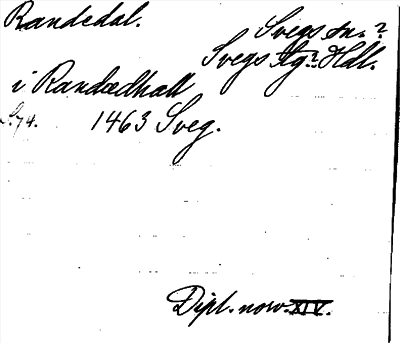 Randedal.
Svegs sn.?
Svegs tlg? Hdl.
i Randædhall
S. 74. 1463 Sveg.
Dipl. norv. XIV.